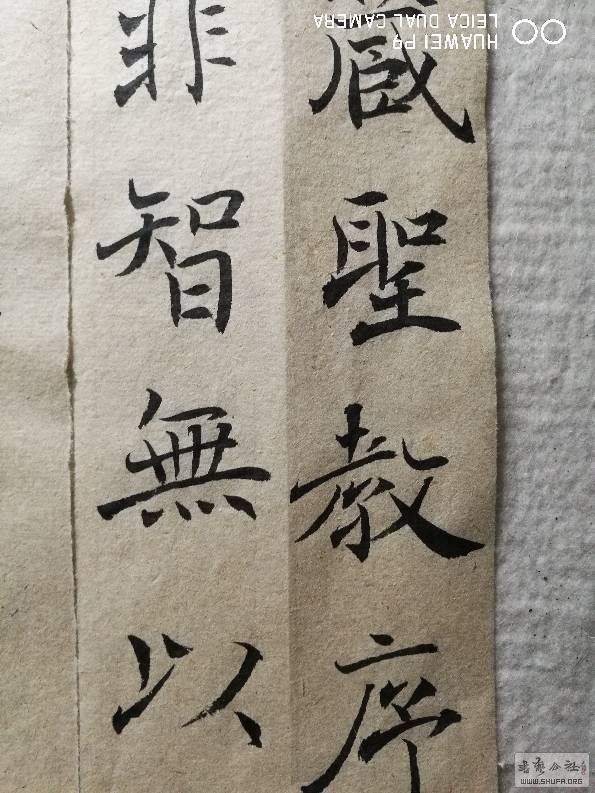 藏聖教序
非智無以
HUAWEI P9
LEICA DUAL CAMERA
書藝公社
WWW.SHUFA.ORG